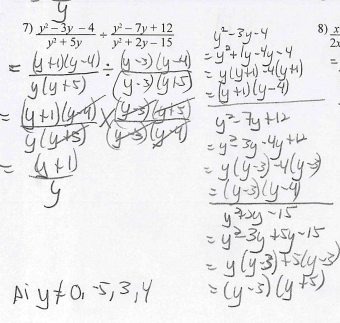 y
7) y²-3y-4 / y²+5y ÷ y²-7y+12 / y²+2y-15
= (y+1)(y-4) / y(y+5) ÷ (y-3)(y-4) / (y-3)(y+5)
= (y+1)(y-4) / y(y+5) × (y-3)(y+5) / (y-3)(y-4)
= (y+1) / y
y≠0,-5,3,4
y²-3y-4
=y²+1y-4y-4
=y(y+1)-4(y+1)
=(y+1)(y-4)
y²-7y+12
=y²-3y-4y+12
=y(y-3)-4(y-3)
=(y-3)(y-4)
y²+2y-15
=y²-3y+5y-15
=y(y-3)+5(y-3)
=(y-3)(y+5)
8) x
2x
=